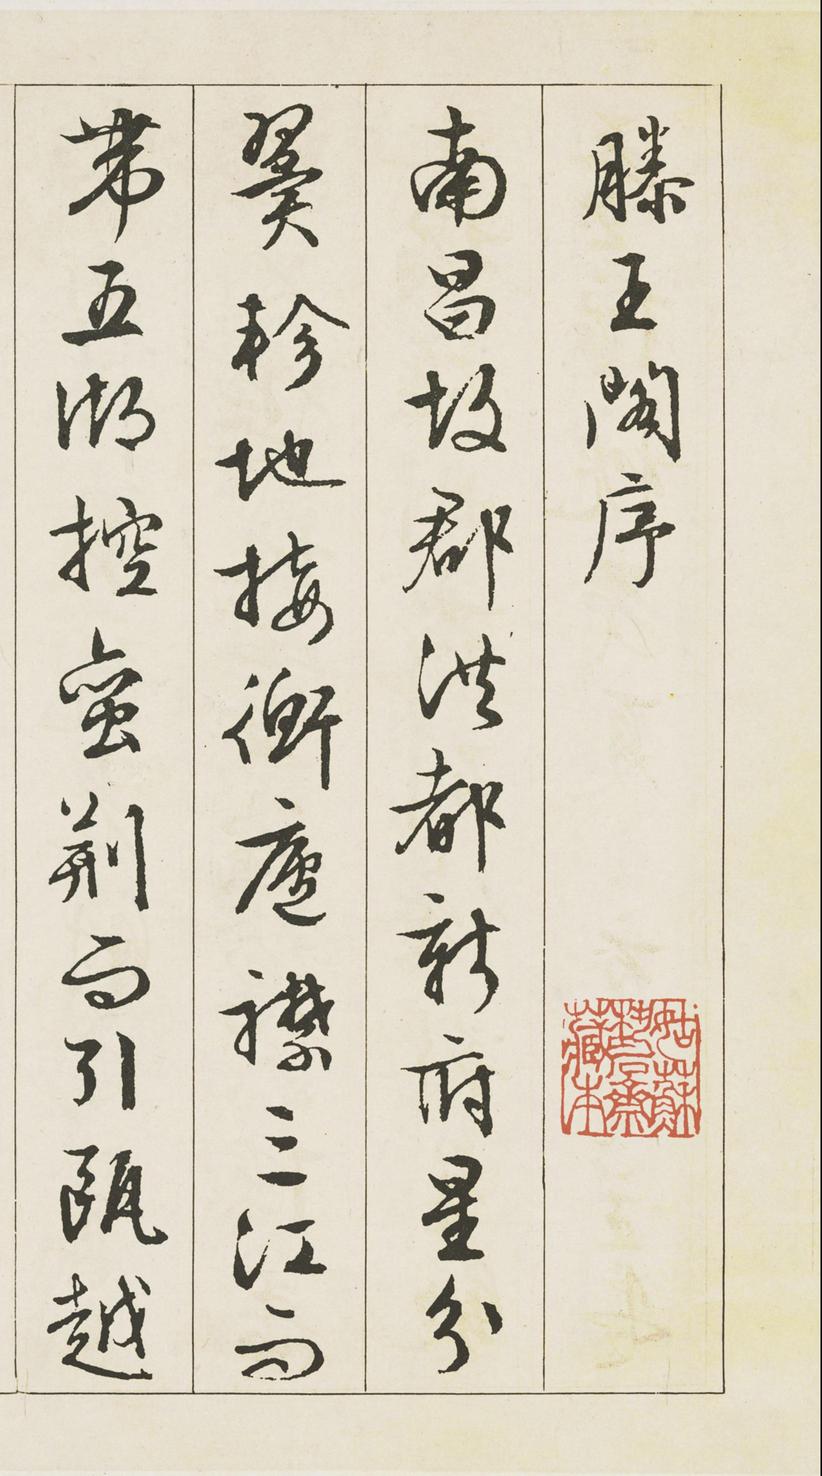 滕王閣序
南昌故郡洪都新府星分
翼軫地接衡廬襟三江而
帶五湖控蠻荆而引甌越
姑蘇
藏本